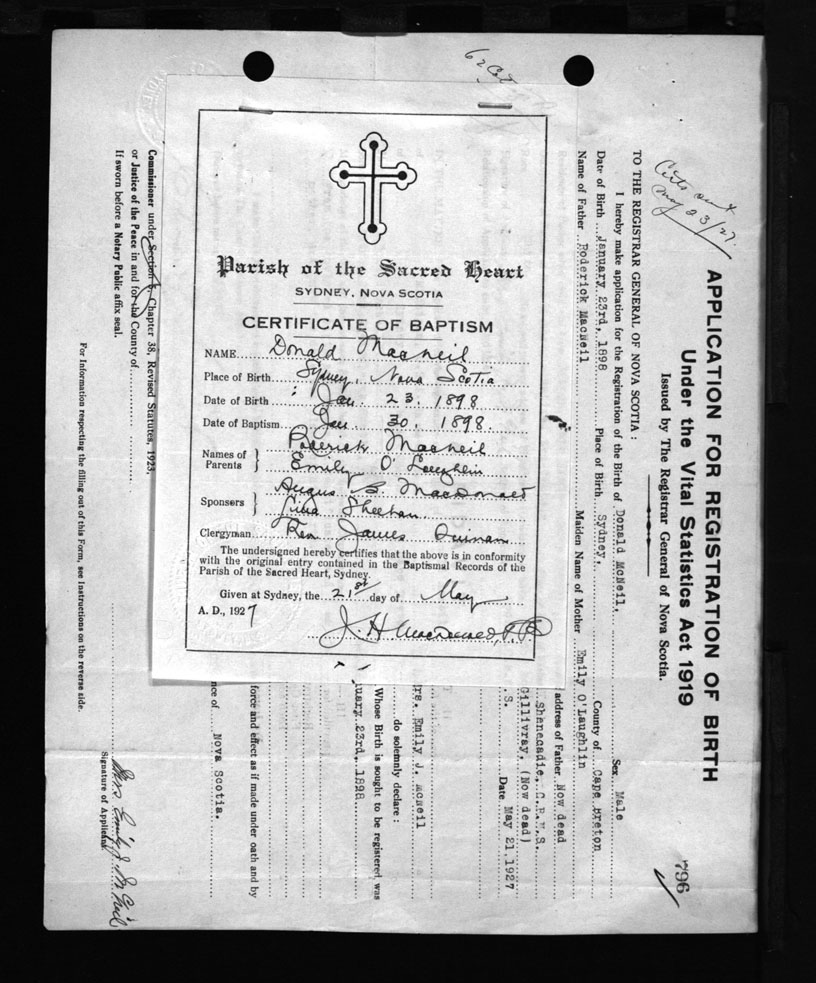 62 Cot
Certs sent
May 23/27.
796
APPLICATION FOR REGISTRATION OF BIRTH
Under the Vital Statistics Act 1919
Issued by The Registrar General of Nova Scotia.
TO THE REGISTRAR GENERAL OF NOVA SCOTIA:
I hereby make application for the Registration of the Birth of Donald McNeil, Sex Male
Date of Birth January 23rd, 1898 Place of Birth Sydney, County of Cape Breton
Name of Father Roderick MacNeil Maiden Name of Mother Emily O'Laughlin
address of Father Now dead
Shenacadie, C.B.N.S.
Gillivray, (Now dead)
.S. Date May 21, 1927
rs. Emily J. McNeil
do solemnly declare:
Whose Birth is sought to be registered, was
uary 23rd, 1898
force and effect as if made under oath and by
nce of Nova Scotia.
Mrs Emily J. McNeil
Signature of Applicant
Commissioner under Section 6, Chapter 38, Revised Statutes, 1923,
or Justice of the Peace in and for the County of
If sworn before a Notary Public affix seal.
For Information respecting the filling out of this Form, see Instructions on the reverse side.
Parish of the Sacred Heart
SYDNEY, NOVA SCOTIA
CERTIFICATE OF BAPTISM
NAME Donald MacNeil
Place of Birth Sydney, Nova Scotia
Date of Birth Jan. 23. 1898
Date of Baptism Jan 30. 1898.
Names of Parents Roderick MacNeil
Emily O'Loughlin
Sponsors Angus B. MacDonald
Lina Sheehan
Clergyman Rev James Quinan
The undersigned hereby certifies that the above is in conformity
with the original entry contained in the Baptismal Records of the
Parish of the Sacred Heart, Sydney.
Given at Sydney, the 21st day of May
A. D., 1927
J. H. MacDonald, P.P.